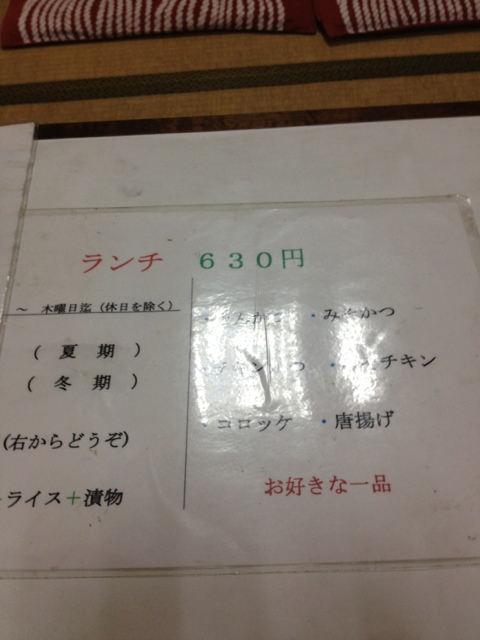 ランチ ６３０円
～ 木曜日迄（休日を除く）
（ 夏 期 ）
（ 冬 期 ）
（右からどうぞ）
ライス＋漬物
・みそかつ
チキン
・コロッケ ・唐揚げ
お好きな一品